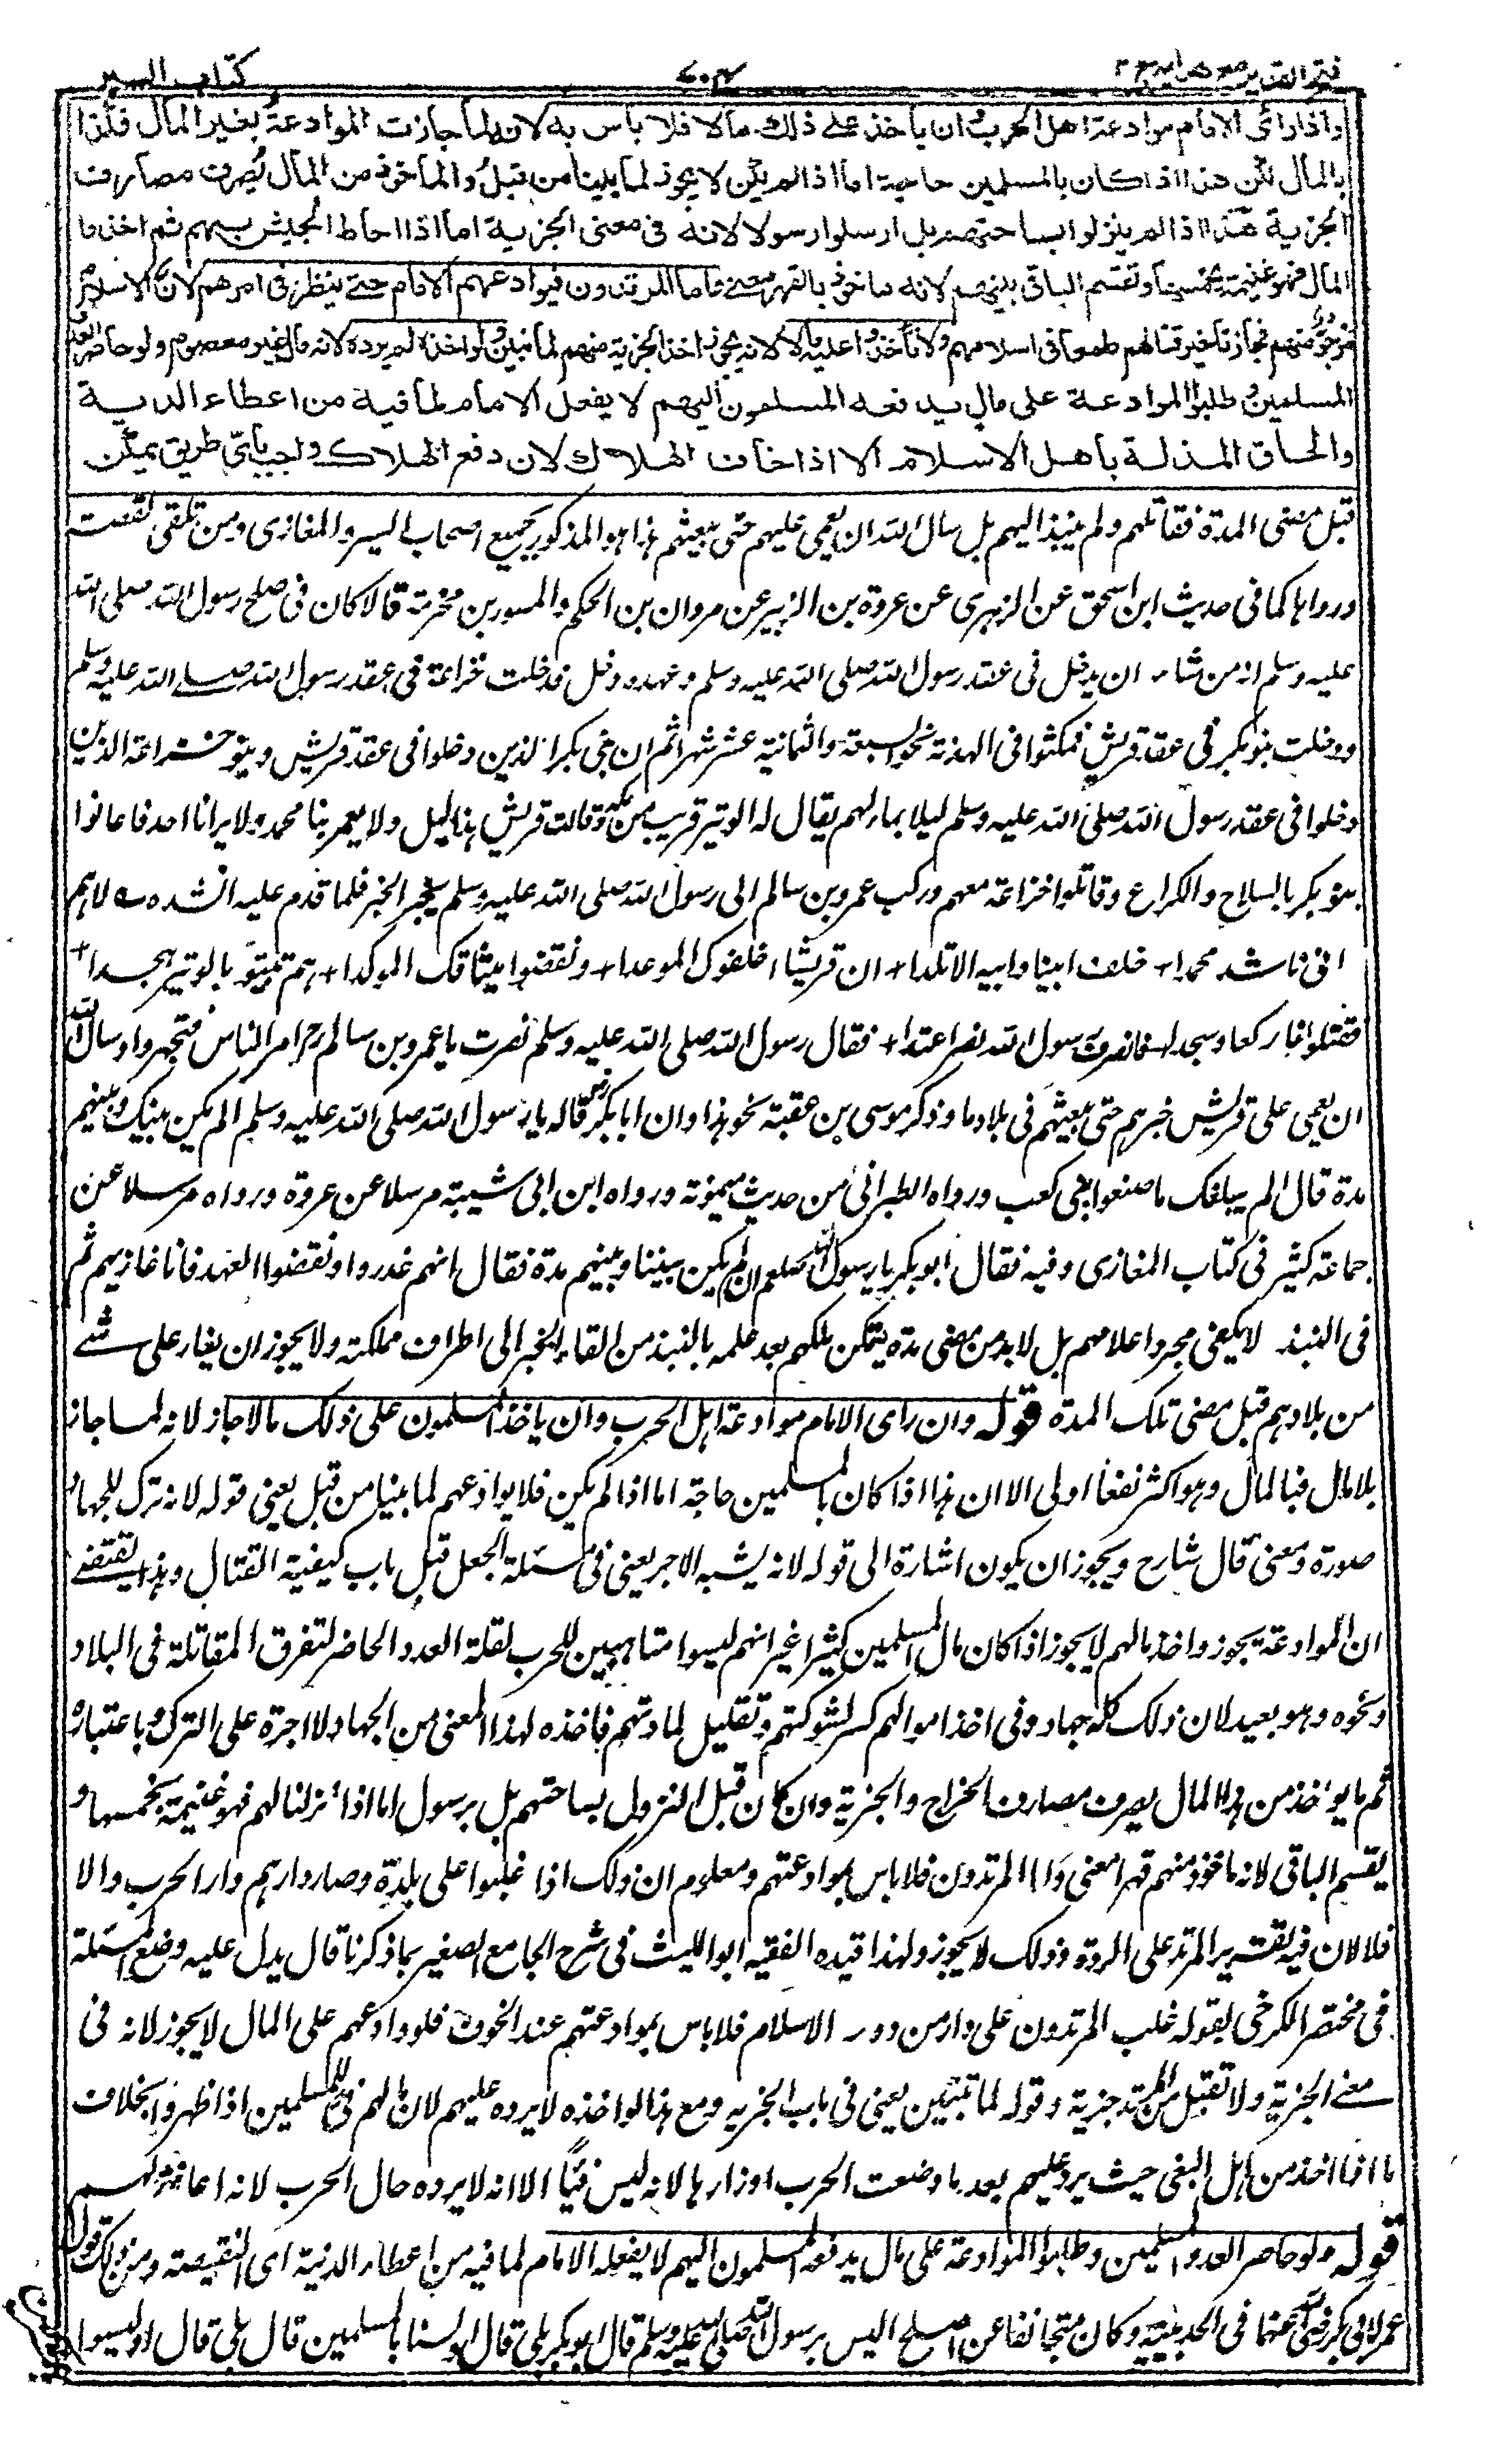 فتح القدير مع هداية ج ٢
٧٠٤
كتاب السير
واذا رأى الامام موادعة اهل الحرب وان يأخذ على ذلك مالا فلا بأس به لانه لما جازت الموادعة بغير المال فكذا
بالمال لكن هذا اذا كان بالمسلمين حاجة اما اذا لم يكن لا يجوز لما بينا من قبل والمأخوذ من المال يصرف مصارف
الجزية هذا اذا لم ينزلوا بساحتهم بل ارسلوا رسولا لانه فى معنى الجزية اما اذا احاط الجيش بهم ثم اخذ وا
المال فهو غنيمة يخمسها وتقسم الباقى بينهم لانه مأخوذ بالقهر معنى واما المرتدون فيوادعهم الامام حتى ينظر فى امرهم لان الاسلام
مرجو منهم فجاز تأخير قتالهم طمعا فى اسلامهم ولا يأخذ عليه مالا لانه لا يجوز اخذ الجزية منهم لما نبين ولو اخذه لم يرده لانه مال غير معصوم ولو حاصر العدو
المسلمين وطلبوا الموادعة على مال يدفعه المسلمون اليهم لا يفعل الامام لما فيه من اعطاء الدنية
والحاق المذلة باهل الاسلام الا اذا خاف الهلاك لان دفع الهلاك واجب بأى طريق يمكن
قبل مضى المدة فقاتلهم ولم ينبذ اليهم بل سأل الله ان يعمى عليهم حتى يبغتهم هذا هو المذكور لجميع اصحاب السير والمغازى ومن تلقى القصة
ورواها كما فى حديث ابن اسحق عن الزهرى عن عروة بن الزبير عن مروان بن الحكم والمسور بن مخرمة قالا كان فى صلح رسول الله صلى الله
عليه وسلم انه من شاء ان يدخل فى عقد رسول الله صلى الله عليه وسلم وعهده دخل فدخلت خزاعة فى عقد رسول الله صلى الله عليه وسلم
ودخلت بنو بكر فى عقد قريش فمكثوا فى الهدنة نحو السبعة والثمانية عشر شهرا ثم ان بنى بكر الذين دخلوا فى عقد قريش وثبوا على خزاعة الذين
دخلوا فى عقد رسول الله صلى الله عليه وسلم ليلا بماء لهم يقال له الوتير قريب من مكة وقالت قريش هذا ليل ولا يعلم بنا محمد ولا يرانا احد فاعانوا
بنو بكر بالسلاح والكراع وقاتلوا خزاعة معهم وركب عمرو بن سالم الى رسول الله صلى الله عليه وسلم يخبر الخبر فلما قدم عليه انشده ے لاهم
انى ناشد محمدا + حلف ابينا وابيه الاتلدا + ان قريشا اخلفوك الموعدا + ونقضوا ميثاقك الموكدا + هم بيتونا بالوتير هجدا +
فقتلونا ركعا وسجدا + فانصر رسول الله نصرا عتدا + فقال رسول الله صلى الله عليه وسلم نصرت يا عمرو بن سالم ثم امر الناس فتجهزوا وسأل الله
ان يعمى على قريش خبرهم حتى يبغتهم فى بلادهم وذكر موسى بن عقبة نحو هذا وان ابا بكر قال له يا رسول الله صلى الله عليه وسلم الم يكن بينك وبينهم
مدة قال الم يبلغك ما صنعوا ببنى كعب ورواه الطبرانى من حديث ميمونة ورواه ابن ابى شيبة مرسلا عن عروة ورواه مرسلا عن
جماعة كثير فى كتاب المغازى وفيه فقال ابو بكر يا رسول الله صلعم او لم يكن بيننا وبينهم مدة فقال انهم غدروا ونقضوا العهد فانا غازيهم ثم
فى النبذ لا يكفى مجرد اعلامهم بل لا بد من مضى مدة يتمكن ملكهم بعد علمه بالنبذ من القاء الخبر الى اطراف مملكته ولا يجوز ان يغار على شئ
من بلادهم قبل مضى تلك المدة قوله وان رأى الامام موادعة اهل الحرب وان ياخذ المسلمون على ذلك مالا جاز لانه لما جاز
بلا مال فبالمال وهو اكثر نفعا اولى الا ان هذا اذا كان بالمسلمين حاجة اما اذا لم يكن فلا يوادعهم لما بينا من قبل يعنى قوله لانه ترك للجهاد
صورة ومعنى قال شارح ويجوز ان يكون اشارة الى قوله لانه يشبه الاجر يعنى فى مسئلة الجعل قبل باب كيفية القتال وهذا يقتضى
ان الموادعة يجوز واخذ مالهم لا يجوز اذا كان مال المسلمين كثيرا غير انهم ليسوا متاهبين للحرب لقلة العدد الحاضر لتفرق المقاتلة فى البلاد
ونحوه وهو بعيد لان ذلك كله جهاد وفى اخذ اموالهم كسر لشوكتهم وتقليل لمادتهم فاخذه لهذا المعنى من الجهاد لا اجرة على الترك وباعتباره
ثم ما يؤخذ من هذا المال يصرف مصارف الخراج والجزية وان كان قبل النزول بساحتهم بل برسول اما اذا نزلنا لهم فهو غنيمة يخمسها و
يقسم الباقى لانه ماخوذ منهم قهرا معنى واما المرتدون فلا باس بموادعتهم ومعلوم ان ذلك اذا غلبوا على بلدة وصار دارهم دار الحرب والا
فلا لان فيه تقرير المرتد على الردة وذلك لا يجوز ولهذا قيده الفقيه ابو الليث فى شرح الجامع الصغير بما ذكرنا قال يدل عليه وضع المسئلة
فى مختصر الكرخى بقوله غلب المرتدون على دار من دور الاسلام فلا باس بموادعتهم عند الخوف فلو وادعهم على المال لا يجوز لانه فى
معنى الجزية ولا تقبل من المرتد جزية وقوله لما نبين يعنى فى باب الجزية ومع هذا لو اخذه لا يرده عليهم لان مالهم فئ للمسلمين اذا ظهروا بخلاف
ما اذا اخذ من اهل البغى حيث يرد عليهم بعد ما وضعت الحرب اوزارها لانه ليس فيئا الا انه لا يرده حال الحرب لانه اعانة لهم
قوله ولو حاصر العدو المسلمين وطلبوا الموادعة على مال يدفعه المسلمون اليهم لا يفعله الامام لما فيه من اعطاء الدنية اى النقيصة ومن ذلك قول
عمر لابى بكر رضى الله عنهما فى الحديبية وكان متجانفا عن الصلح اليس برسول الله صلى الله عليه وسلم قال ابو بكر بلى قال او لسنا بالمسلمين قال بلى قال او ليسوا